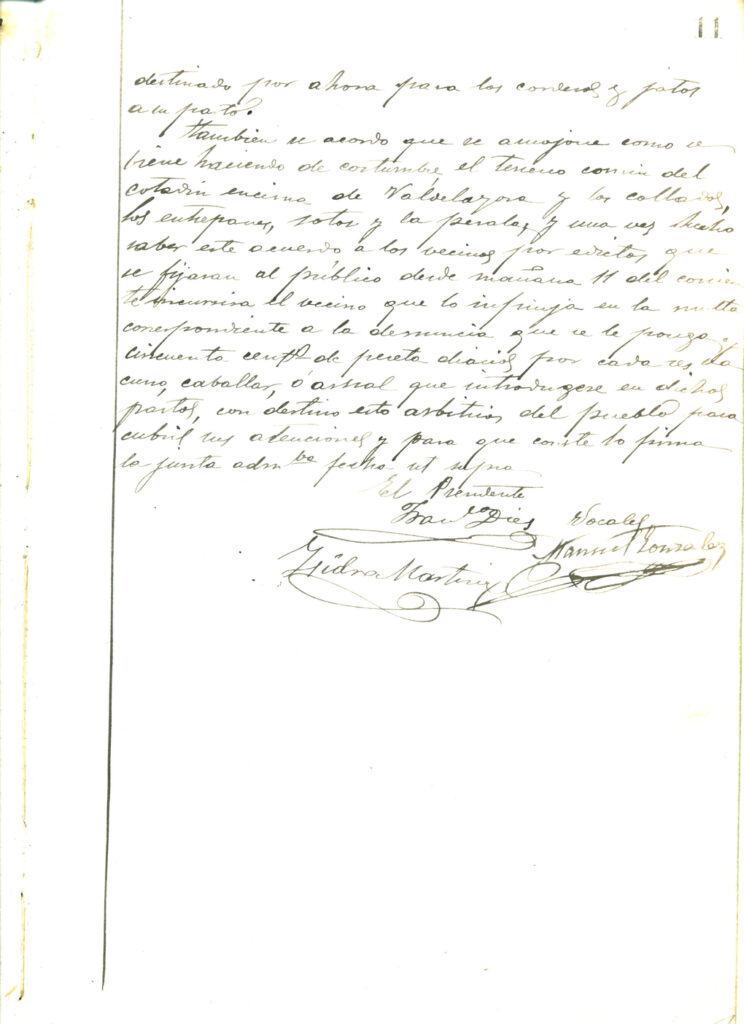 11
destinado por ahora para los corderos y jatos
a su pasto.
Tambien se acordo que se amojone como se
biene haciendo de costumbre el terreno comun del
cotadin encima de Valdelayora y los collados,
los entrepanes, sotos y la peralas y una vez hecho
saber este acuerdo a los vecinos por edictos que
se fijaran al público desde mañana 11 del corrien
te incurrira el vecino que lo infrinja en la multa
corespondiente a la denuncia que se le ponga y
cincuenta cents. de peseta diarias por cada res va
cuno, caballar, ó asnal que introdugese en dichos
pastos, con destino esto arbitrios del pueblo para
cubril sus atenciones y para que conste lo firma
la junta admva fecha ut supra
El Presidente
Franco Dies Vocales
Manuel Gonzalez
Isidro Martinez